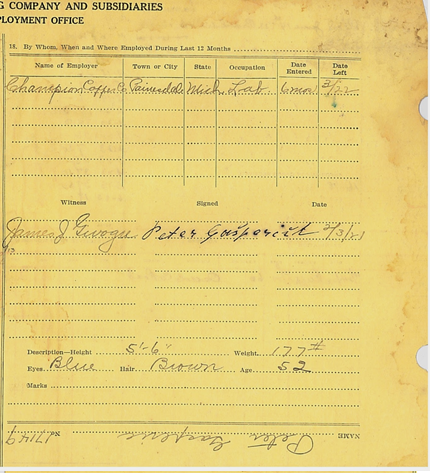 G COMPANY AND SUBSIDIARIES
PLOYMENT OFFICE
18. By Whom, When and Where Employed During Last 12 Months
Name of Employer Town or City State Occupation Date Entered Date Left
Champion Copper Co Painesdale Mich Lab. 6 mos 3/22
Witness Signed Date
James J. Peter
Description—Height 5'-6" Weight 177#
Eyes Blue Hair Brown Age 52
Marks
NAME Peter No 17149